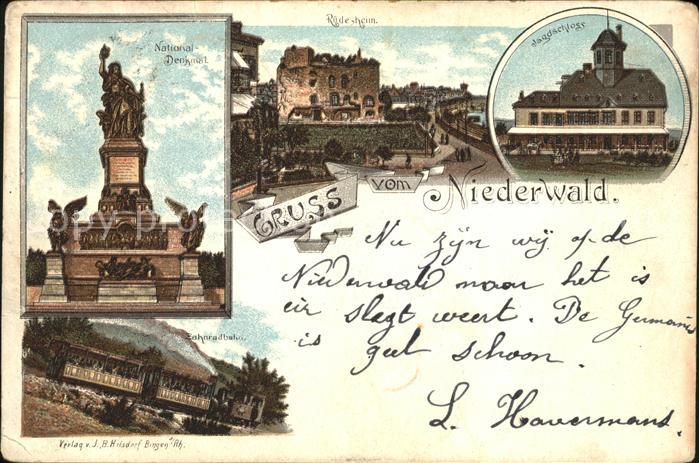 National-
Denkmal.
Rüdesheim.
Jagdschloss
GRUSS vom Niederwald.
Nu zijn wij op de
Niederwald maar het is
slegt weert. De Germania
is schoon.
L. Havermans.
Zahnradbahn.
Verlag v. J. B. Hilsdorf Bingen a/Rh.